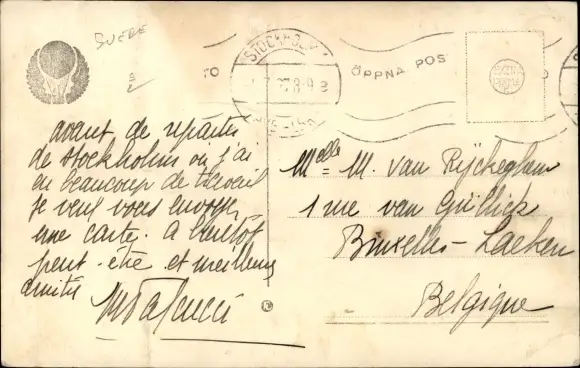 SUÈDE
STOCKHOLM
ÖPPNA POS
avant de repartir
de Stockholm où j'ai
eu beaucoup de travail
je veux vous envoyer
une carte. A bientôt
peut-être et meilleures
amitiés
Melle M. van Rijckeghem
1 rue van Gullick
Bruxelles-Laeken
Belgique